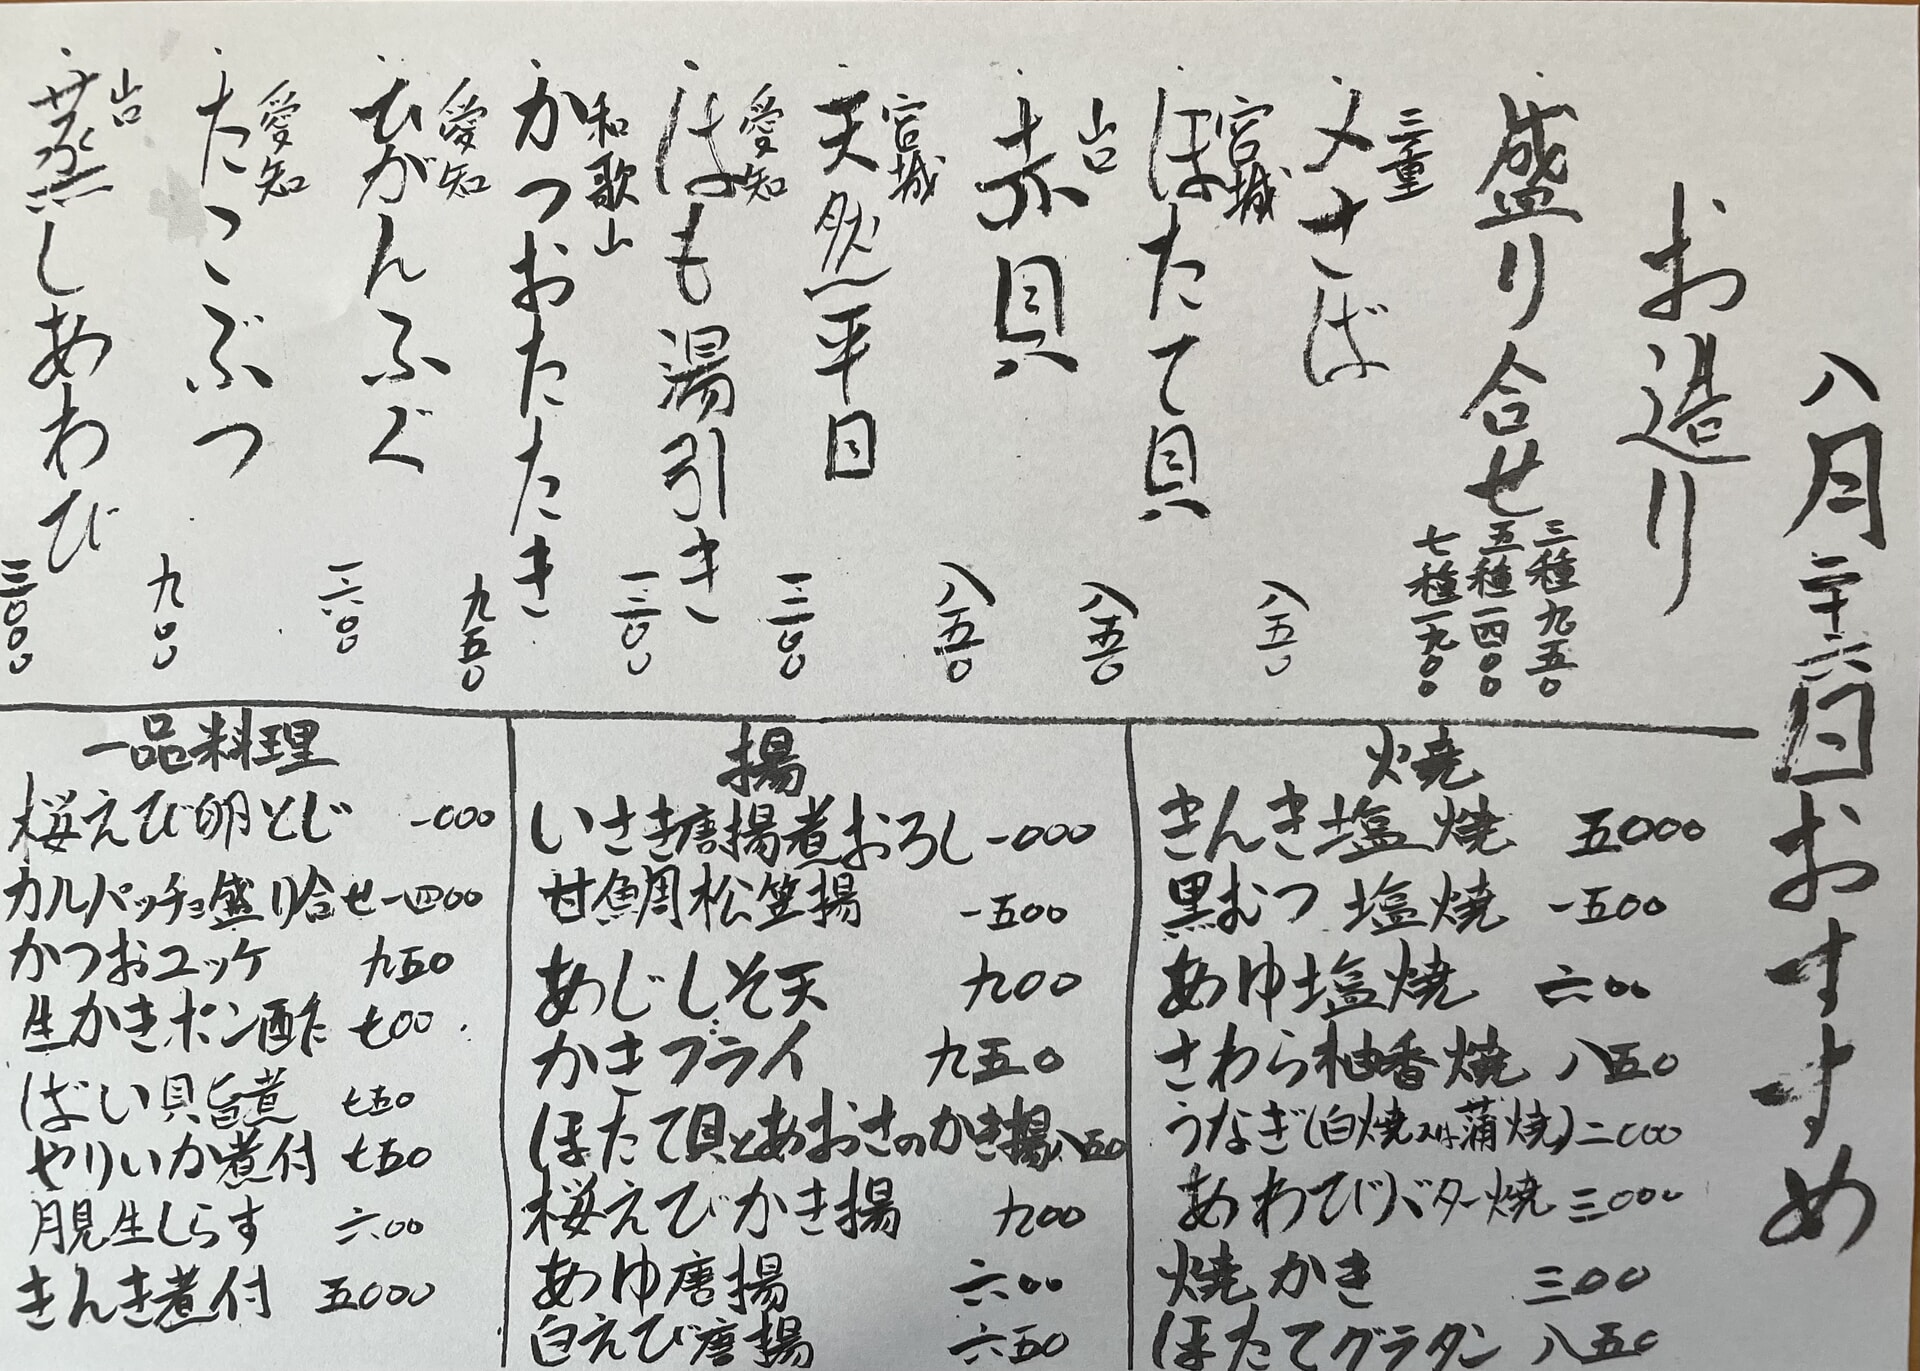 八月二十六日おすすめ
お造り
盛り合せ
三種九五〇
五種一四〇〇
七種一九〇〇
三重
〆さば 八五〇
宮城
ほたて貝 八五〇
山口
赤貝 八五〇
宮城
天然平目 一二〇〇
愛知
はも湯引き 一二〇〇
和歌山
かつおたたき 九五〇
愛知
ひがんふぐ 一六〇〇
愛知
たこぶつ 九〇〇
山口
蒸しあわび 三〇〇〇
焼
きんき塩焼 五〇〇〇
黒むつ塩焼 一五〇〇
あゆ塩焼 六〇〇
さわら柚香焼 八五〇
うなぎ(白焼又は蒲焼)二〇〇〇
あわびバター焼 三〇〇〇
焼かき 三〇〇
ほたてグラタン 八五〇
揚
いさき唐揚煮おろし 一〇〇〇
甘鯛松笠揚 一五〇〇
あじしそ天 九〇〇
かきフライ 九五〇
ほたて貝とあおさのかき揚 八五〇
桜えびかき揚 九〇〇
あゆ唐揚 六〇〇
白えび唐揚 六五〇
一品料理
桜えび卵とじ 一〇〇〇
カルパッチョ盛り合せ 一四〇〇
かつおユッケ 九五〇
生かきポン酢 七〇〇
ばい貝旨煮 七五〇
やりいか煮付 七五〇
月見生しらす 六〇〇
きんき煮付 五〇〇〇